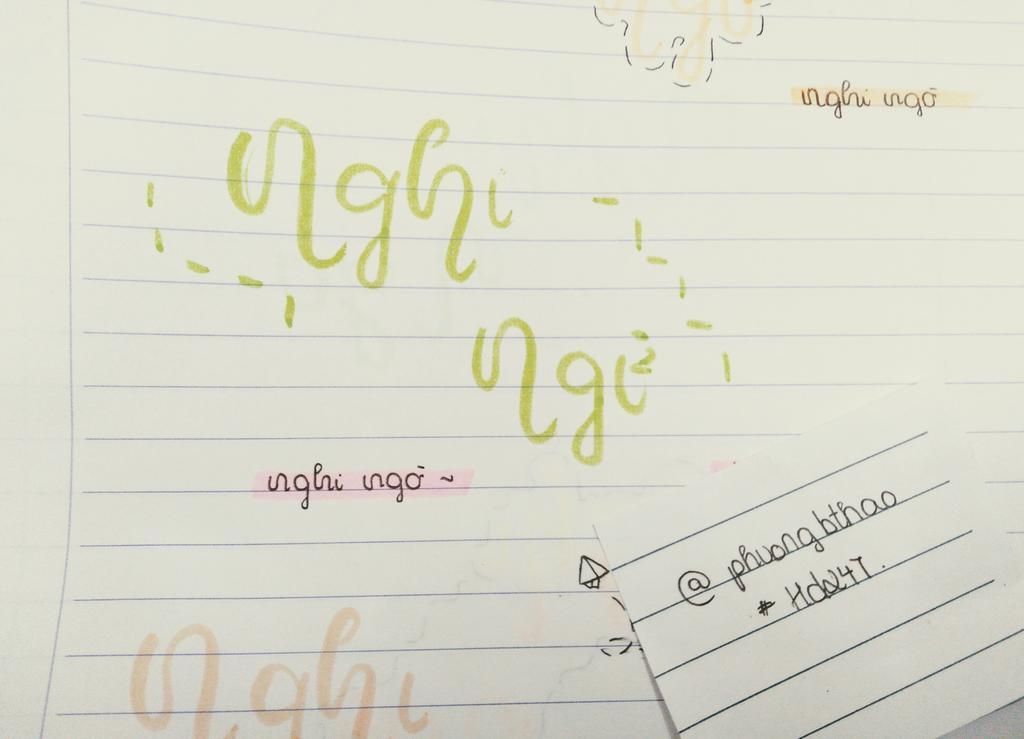 Ngờ
nghi ngờ
Nghi
Ngờ
nghi ngờ ~
@ phuongbthao
# Hd24T.
Nghi